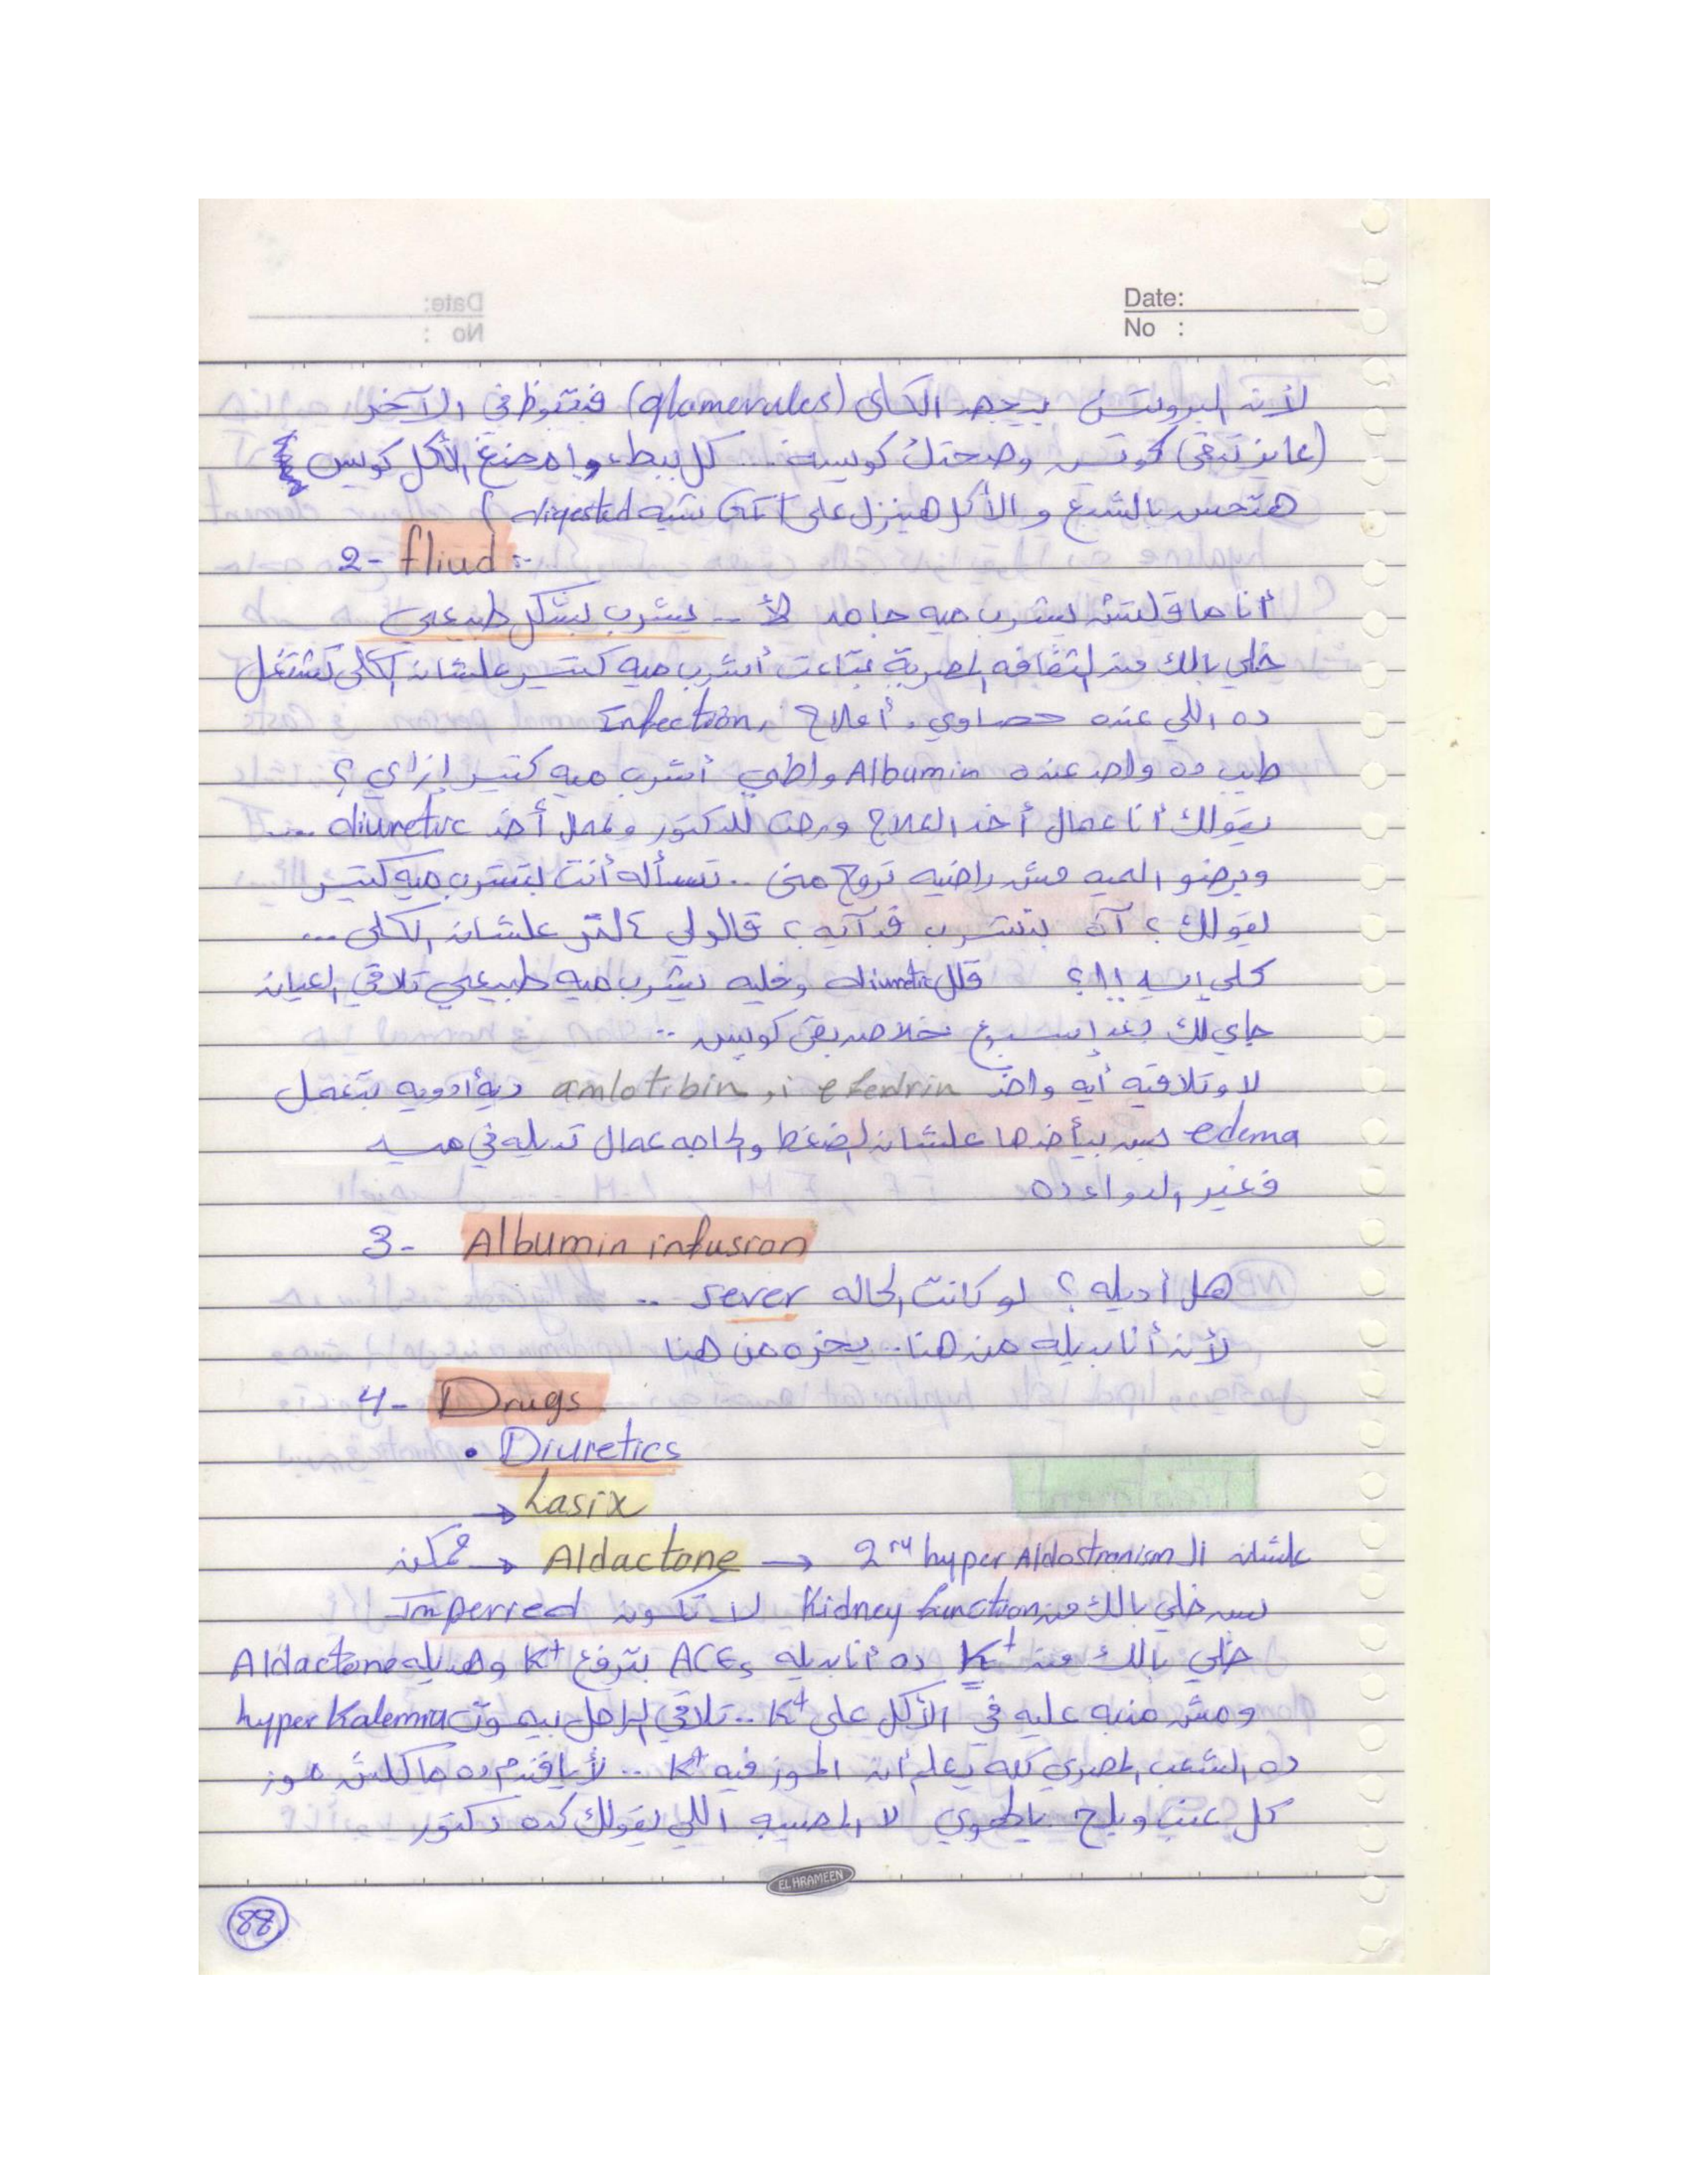 Date:
No :
لأن البروتين بيجهد الكلى (glomerules) فتبوظ في الآخر
(عايز تبقى كويس وصحتك كويسه ... كل ببطء وامضغ الأكل كويس
هتحس بالشبع و الأكل هينزل على GIT شبه digested)
2- fliud :-
أنا ماقلتش يشرب ميه جامد لأ .. يشرب بشكل طبيعي
خلي بالك من الثقافه المصرية بتاعت أشرب ميه كتير علشان الكلى تشتغل
ده اللي عنده حصاوي، أملاح، Infection
طيب ده واحد عنده Albumin واطي أشرب ميه كتير إزاي ؟
يقولك أنا عمال أخد العلاج ورحت للدكتور وعمال أخد diuretic
وبرضو الميه مش راضيه تروح مني .. تسأله أنت بتشرب ميه كتير
يقولك ؟ آه بتشرب قد آيه ؟ قالولي علشان الكلى ...
كلى إيه !!؟ قلل diuretic وخليه يشرب ميه طبيعي تلاقي العيان
جاي لك بعد إسبوع خلاص بقى كويس ..
لا وتلاقيه أيه واخد efedrin أو amlotibin ديه أدويه بتعمل
edema بس بيأخدها علشان الضغط والحاجه عمال تديله في ميه
فغير الدواء ده
3- Albumin infusion
هل أديله ؟ لو كانت الحاله sever ..
لأن أنا بديله من هنا .. يخره من هنا
4- Drugs
• Diuretics
→ Lasix
ممكن → Aldactone → 2ry hyper Aldostronism علشان الـ
بس خلي بالك من Kidney function لا تكون Imperred
خلي بالك من K+ ده أنا بديله ACEs بترفع K+ وهديله Aldactone
ومش منبه عليه في الأكل على K+ .. تلاقي الراجل بيموت hyper Kalemia
ده الشعب المصري كله يعلم أن الموز فيه K+ .. لأ يافندم ده ماكلش موز
كل عنب وبلح يالهوي لا المصيبه اللي يقولك كده دكتور
EL HRAMEEN
88